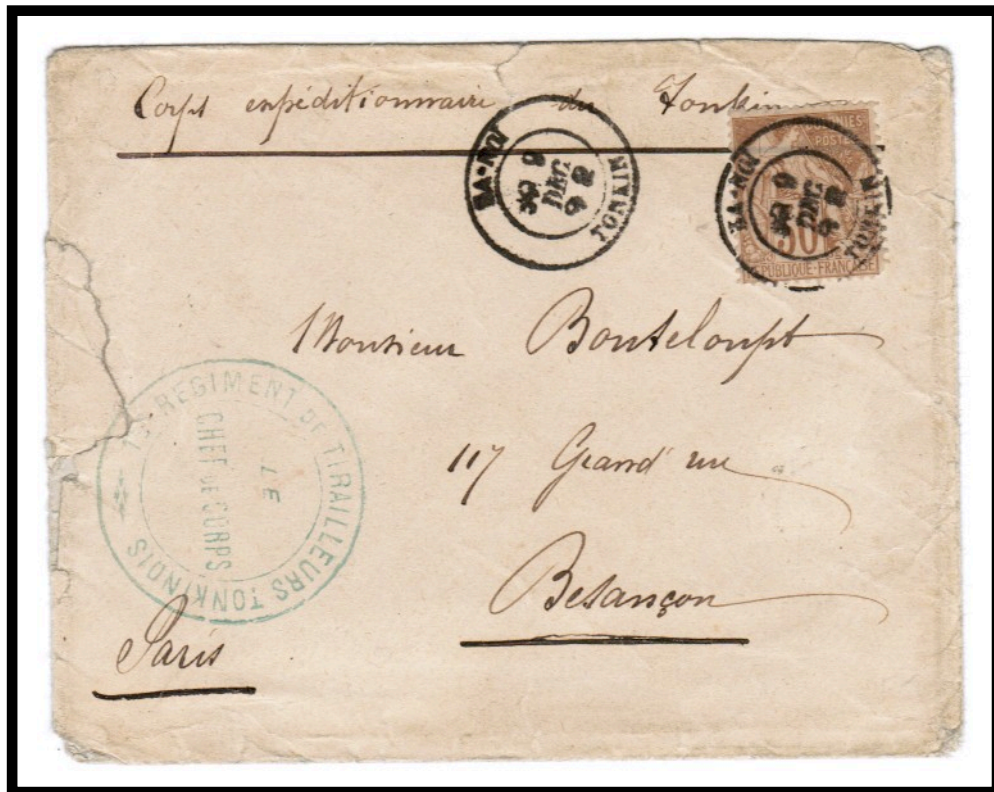 Corps expéditionnaire du Tonkin
HA-NOI
9
DEC
92
TONKIN
COLONIES
POSTE
HA-NOI
9
DEC
92
TONKIN
30
RÉPUBLIQUE-FRANÇAISE
Monsieur Bouteloupt
117 Grand rue
Besançon
REGIMENT DE TIRAILLEURS TONKINOIS
LE
CHEF DE CORPS
Paris